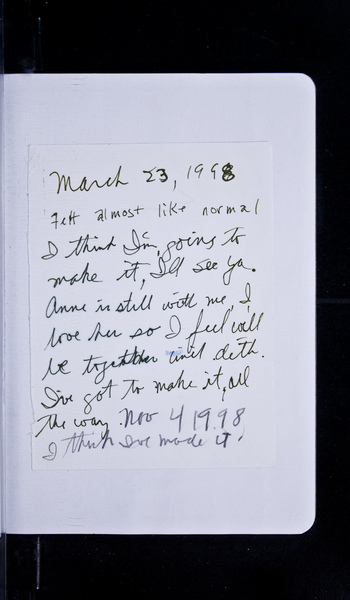 March 23, 1998
Felt almost like normal
I think I'm going to
make it, I'll see ya.
Anne is still with me, I
love her so I feel will
be together until deth.
I've got to make it, all
the way. Nov 4 1998
I think I've made it!